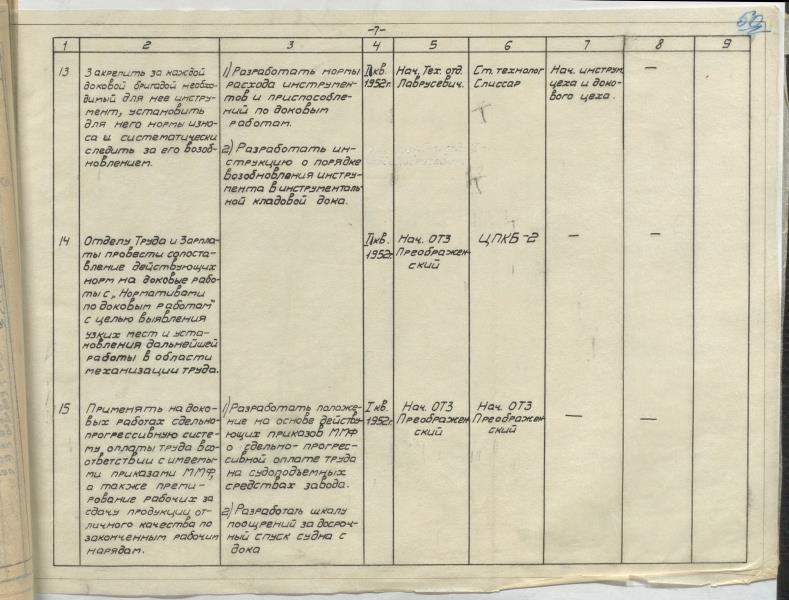 -7-
1 2 3 4 5 6 7 8 9
13
Закрепить за каждой
доковой бригадой необхо-
димый для нее инстру-
мент, установить
для него нормы изно-
са и систематически
следить за его возоб-
новлением.
1) Разработать нормы
расхода инструмен-
тов и приспособле-
ний по доковым
работам.
2) Разработать ин-
струкцию о порядке
возобновления инстру-
мента в инструменталь-
ной кладовой дока.
II кв.
1952г.
Нач. Тех. отд.
Лаврусевич.
Ст. технолог
Слиссар
Нач. инструм.
цеха и доко-
вого цеха.
—
14
Отделу Труда и Зарпла-
ты провести сопоста-
вление действующих
норм на доковые рабо-
ты с „Нормативами
по доковым работам"
с целью выявления
узких мест и уста-
новления дальнейшей
работы в области
механизации труда.
II кв.
1952г.
Нач. ОТЗ
Преображен-
ский
ЦПКБ-2
—
—
15
Применять на доко-
вых работах сдельно-
прогрессивную систе-
му оплаты труда в со-
ответствии с имеемы-
ми приказами ММФ,
а также преми-
рование рабочих за
сдачу продукции от-
личного качества по
законченным рабочим
нарядам.
1) Разработать положе-
ние на основе действу-
ющих приказов ММФ
о сдельно-прогрес-
сивной оплате труда
на судоподъемных
средствах завода.
2) Разработать шкалу
поощрений за досроч-
ный спуск судна с
дока
I кв.
1952г.
Нач. ОТЗ
Преображен-
ский
Нач. ОТЗ
Преображен-
ский
—
—